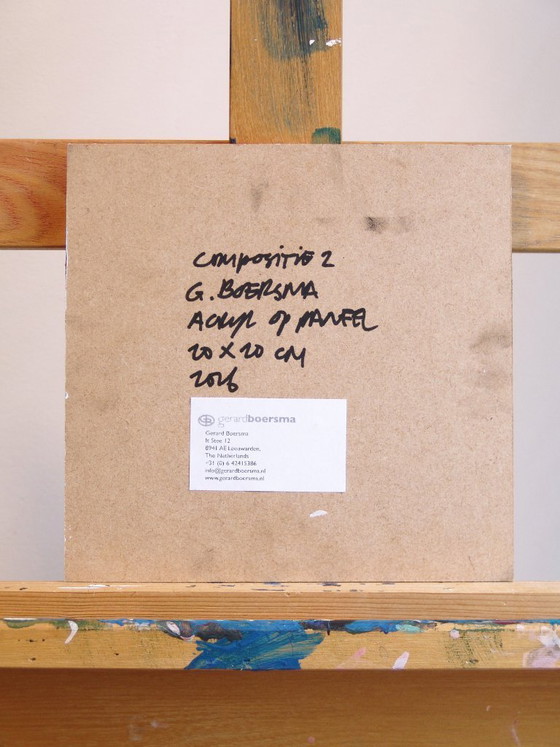 COMPOSITIE 2
G. BOERSMA
ACRYL OP PANEEL
20 X 20 CM
2016
gerardboersma
Gerard Boersma
12
8941 AE Leeuwarden,
The Netherlands
+31 (0) 6 42411386
info@gerardboersma.nl
www.gerardboersma.nl